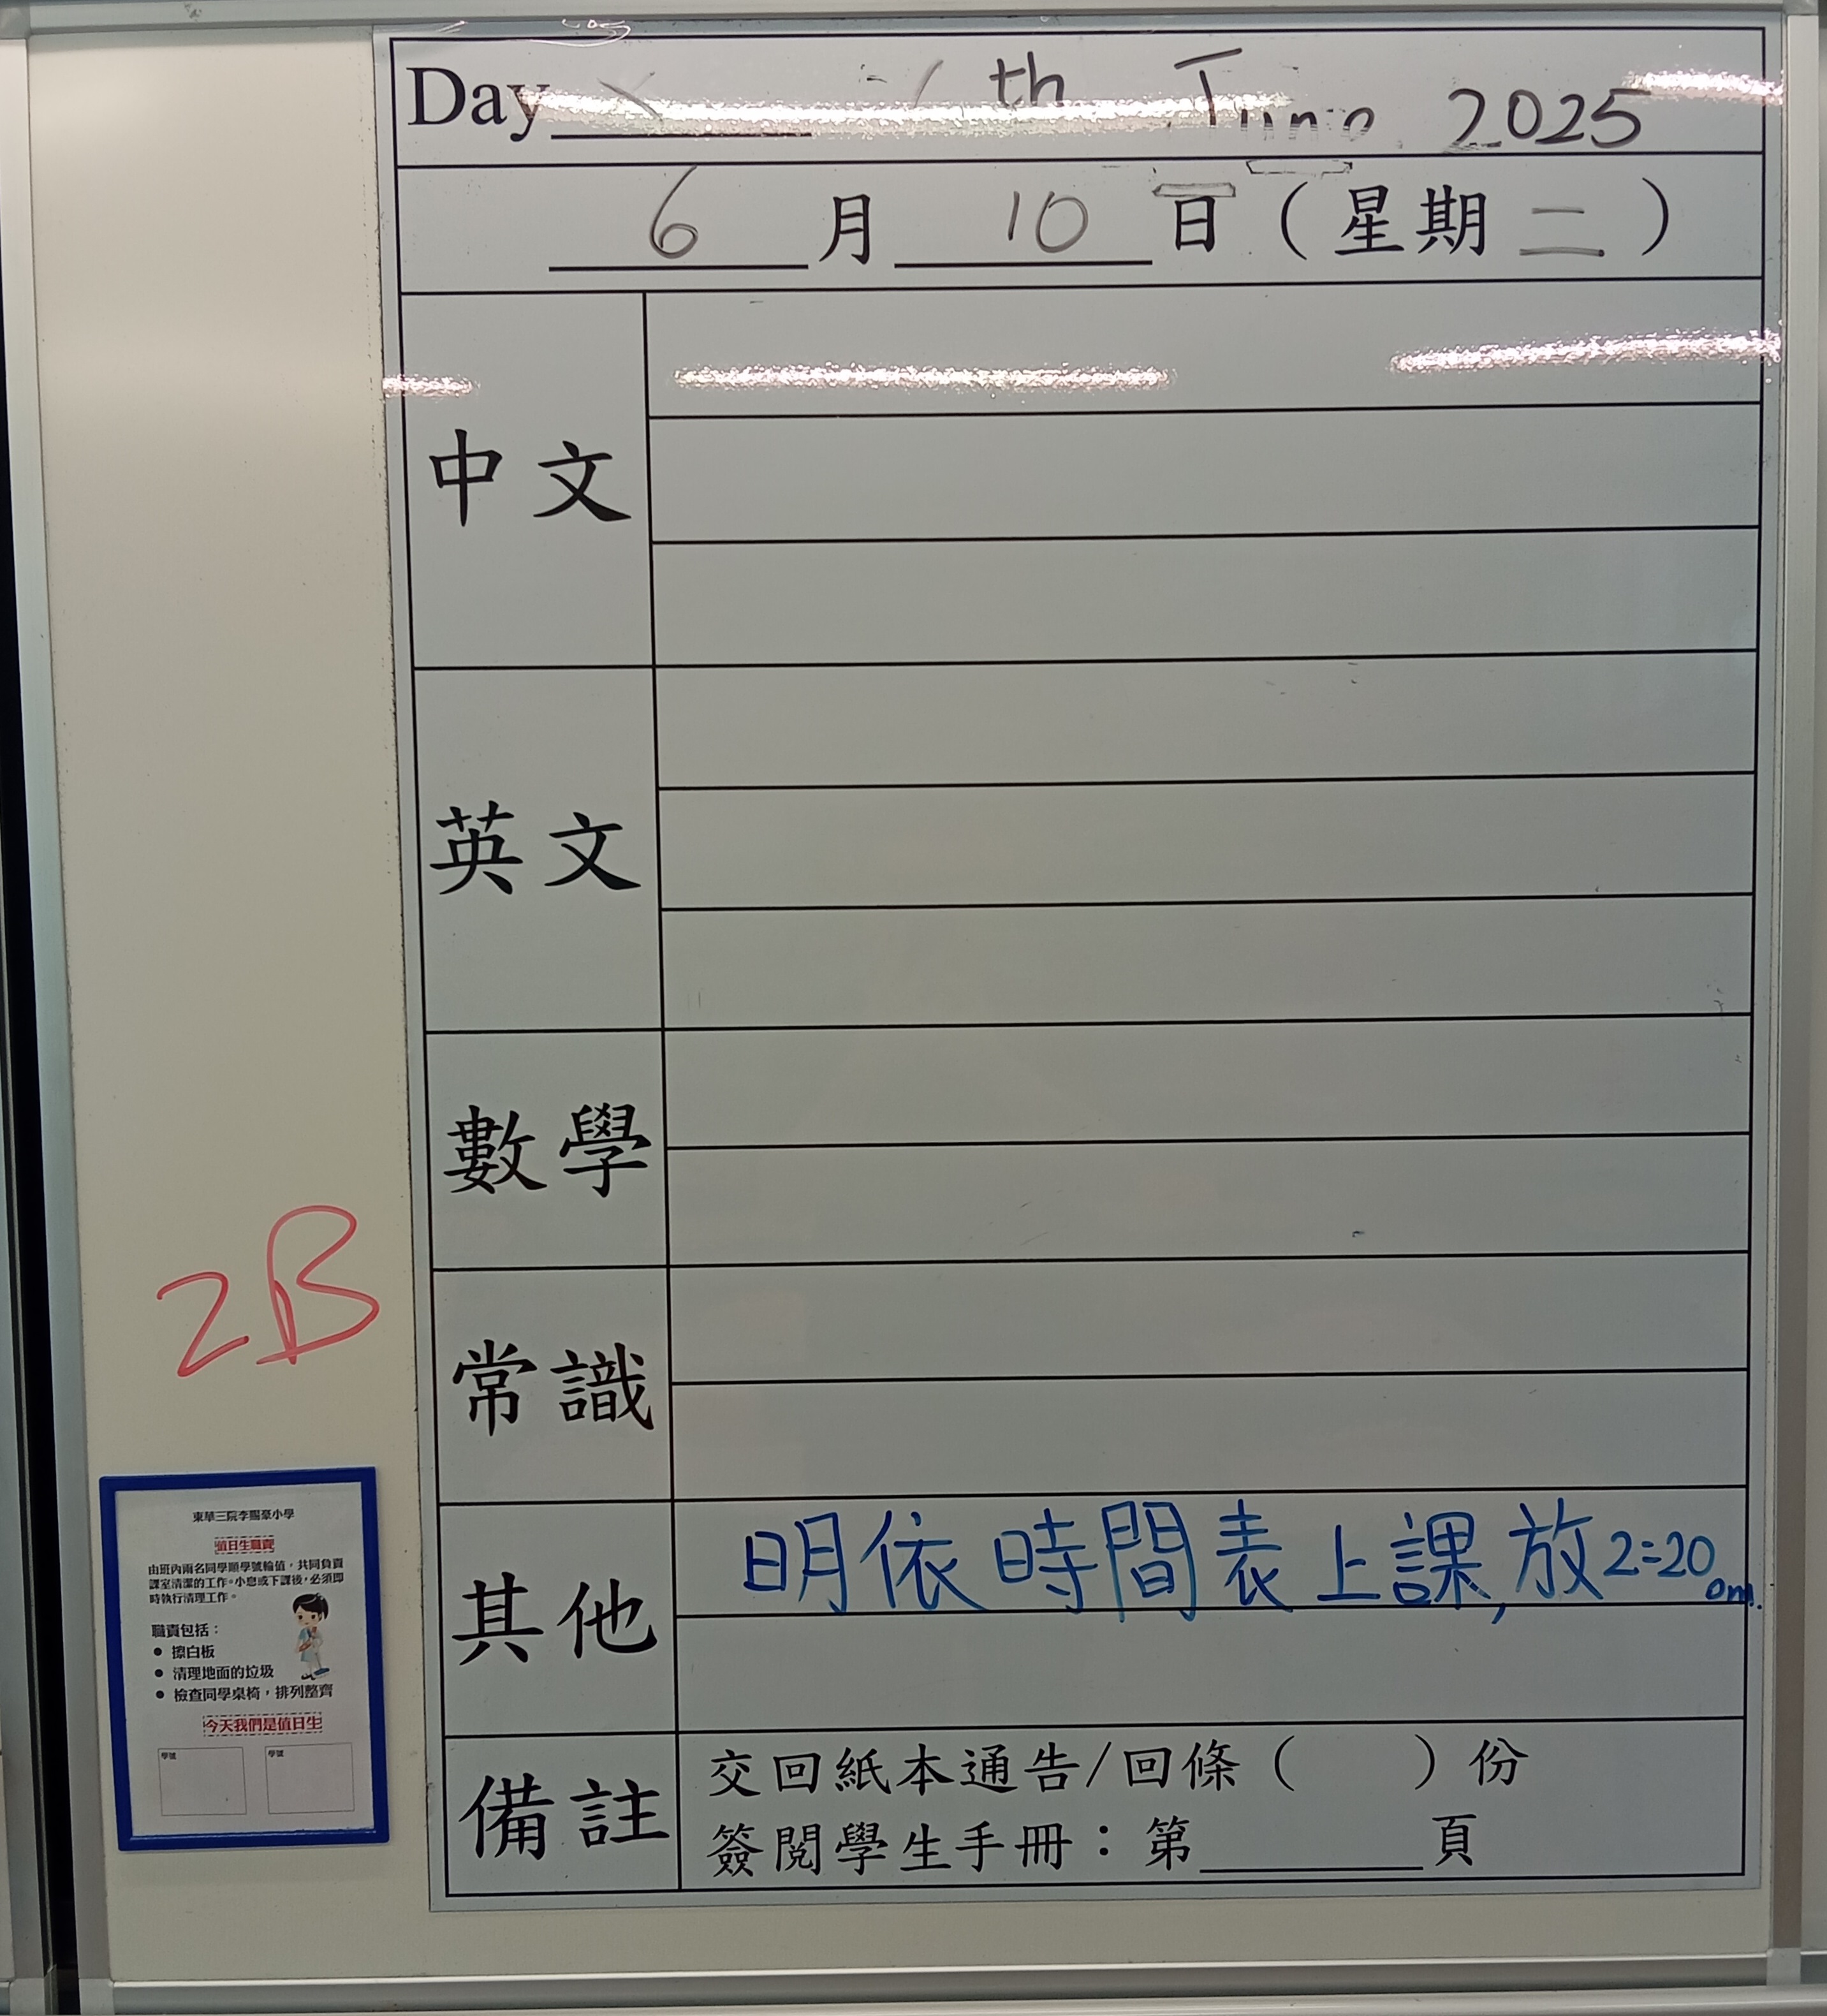 Day th June, 2025
6月10日（星期二）
中文
英文
數學
常識
其他
明依時間表上課,放2:20
備註
交回紙本通告/回條（ ）份
簽閱學生手冊：第______頁
2B
東華三院李賜豪小學
值日生職責
由班內兩名同學順學號輪值，共同負責
課室清潔的工作。小息或下課後，必須即
時執行清理工作。
職責包括：
● 擦白板
● 清理地面的垃圾
● 檢查同學桌椅，排列整齊
今天我們是值日生
學號 學號